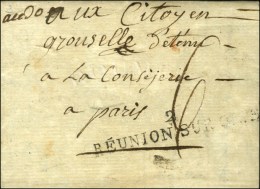 aux Citoyen
grouselle détenu
à La Consiérie
à paris
2
RÉUNION SUR